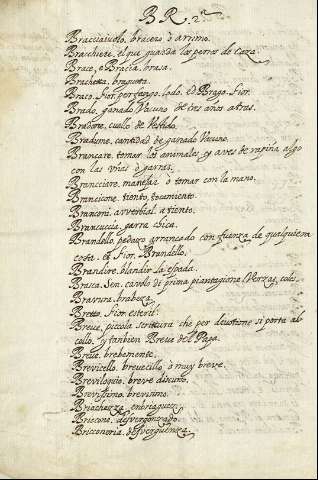 BR. 2ª
Bracciaiuolo, bracero, o arrimo.
Bracchiere, el que guarda los perros de Caza.
Brace, o Bracia, brasa.
Brachetta, bragueta.
Braco. Fior. por fango, lodo. ed Brago. Fior.
Brado, ganado Vacuno de tres años atras.
Bradone, cuello de Vestido.
Bradume, cantidad de ganado Vacuno.
Brancare, tomar los animales, y aves de rapiña algo
con las vñas ò garras.
Brancicare, manosear ò tomar con la mano.
Brancicone, tiento, tocamiento.
Branconi, avverbial. a tiento.
Brancuccia, garra chica.
Brandello, pedazo arrancado con fuerza de qualquiera
cosa. et Fior. Brandello.
Brandire, blandir la espada.
Brasca, Sen. cavolo di prima piantagione, Verzas, coles.
Bravura, brabeza.
Bretto, Fior. esteril.
Breve, piccola scrittura che per devotione si porta al
collo. y tanbien Breve del Papa.
Breve, brebemente.
Brevicello, brevecillo, ò muy breve.
Breviloquio, breve discurso.
Brevissimo, brevisimo.
Briachezza, enbriaguez.
Briccone, desvergonzado.
Bricconeria, desverguenza.